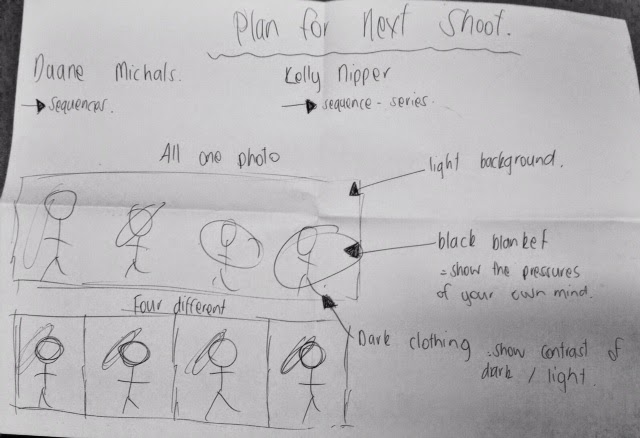 Plan for Next Shoot.
Duane Michals.
→ sequences.
Kelly Nipper
→ sequence - series.
All one photo
light background.
black blanket
= show the pressures
of your own mind.
Four different
Dark clothing = show contrast of
dark / light.